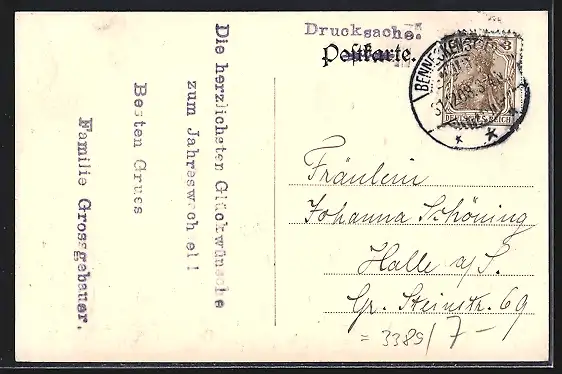 Drucksache!
Postkarte.
BENNECKENSTEIN
3
DEUTSCHES REICH
Die herzlichsten Glückwünsche
zum Jahreswechsel!
Besten Gruss
Familie Grossgebauer.
Fräulein
Johanna Schöning
Halle a/S.
Gr. Steinstr. 69
= 3389/7-